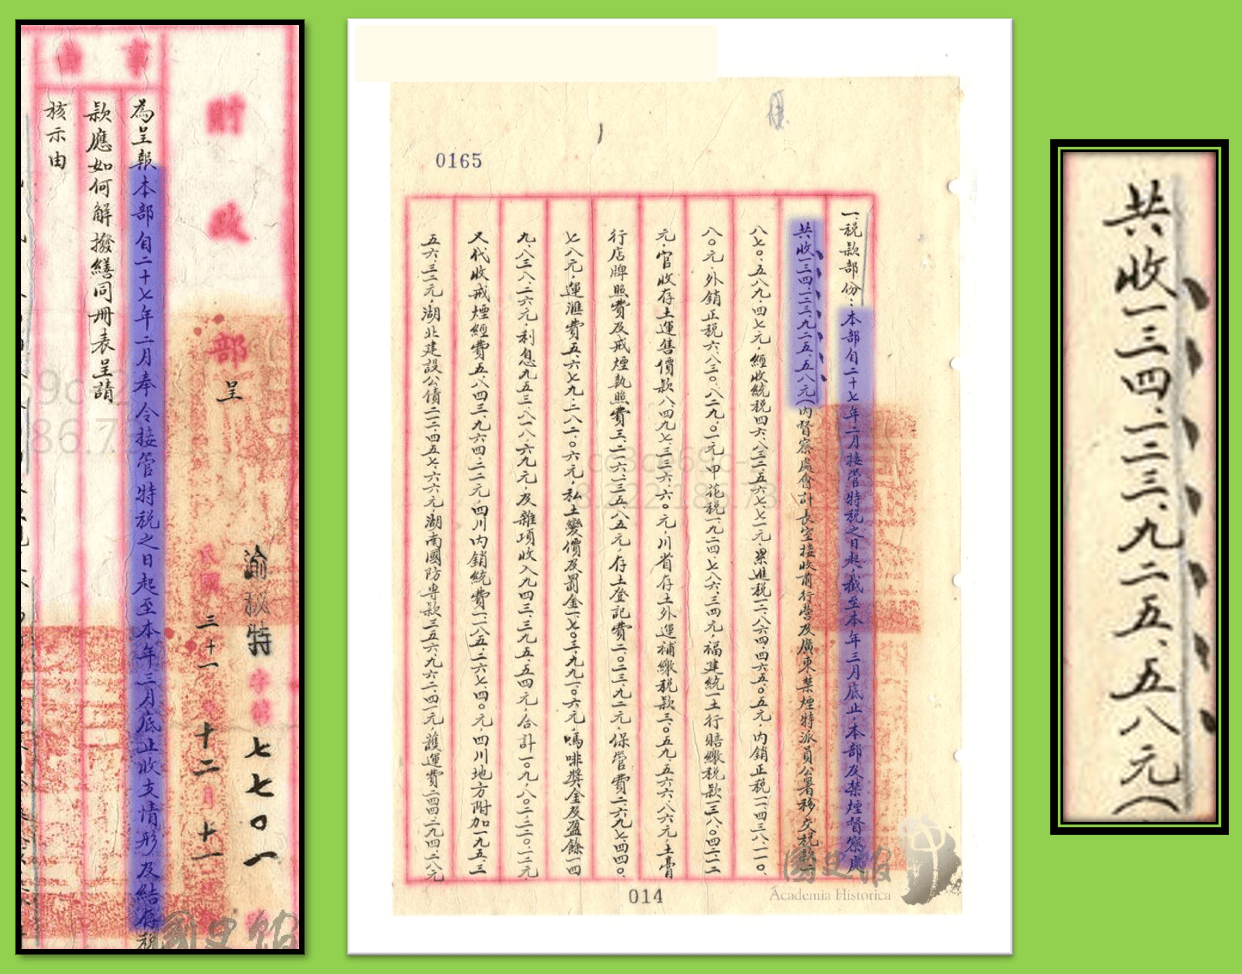 事由
財政部呈
渝秘特字第七七〇一
民國三十一年十二月十一
為呈報本部自二十七年二月奉令接管特稅之日起至本年三月底止收支情形及結存稅
款應如何解撥繕同冊表呈請
核示由
0165
一稅款部份：本部自二十七年二月接管特稅之日起截至本年三月底止本部及禁煙督察處
共收一三四.一三三.九二五.五八元(內督察處會計長室接收前行營及廣東禁煙特派員公署移交稅款一
八七〇.五八九.四七元,經收統稅四六.八三二五六七.七一元,累進稅一二.八六四.四六五.〇五元,內銷正稅一.四三八.一一〇.
八〇元,外銷正稅六.八三〇.八二九.〇一元,甲花稅一.九二四.七八六.三四元,福建統一土行賠繳稅款一三八.〇四二.二二
元,官收存土運售價款八四九七.三三六.六〇元,川省存土外運補繳稅款三.〇五九.五六六.八六元,土膏
行店牌照費及戒煙執照費三.二一六.一三五.八五元,存土登記費二.〇二三.九二元,保管費二六九.七四四.〇
七八元,運滙費五.六七九.三八二.〇六元,私土變價及罰金一.七〇三.九九一.〇六元,嗎啡獎金及盈餘一四
九.八三八.二六元,利息九五三.八一八.六九元,及雜項收入九四三.三九五.五四元,合計一〇九.八〇二.三二〇.一二元
又代收戒煙經費五.八四三.九六四.二二元,四川內銷統費一.一八五.二六七.四〇元,四川地方附加一.九五.三
五六.三二元,湖北建設公債二.二四五.七六六元,湖南國防專款三.五六九.九六二.四一元,護運費二.四四二.九四二.八元
014
國史館
Academia Historica
共收一三四.一三三.九二五.五八元(